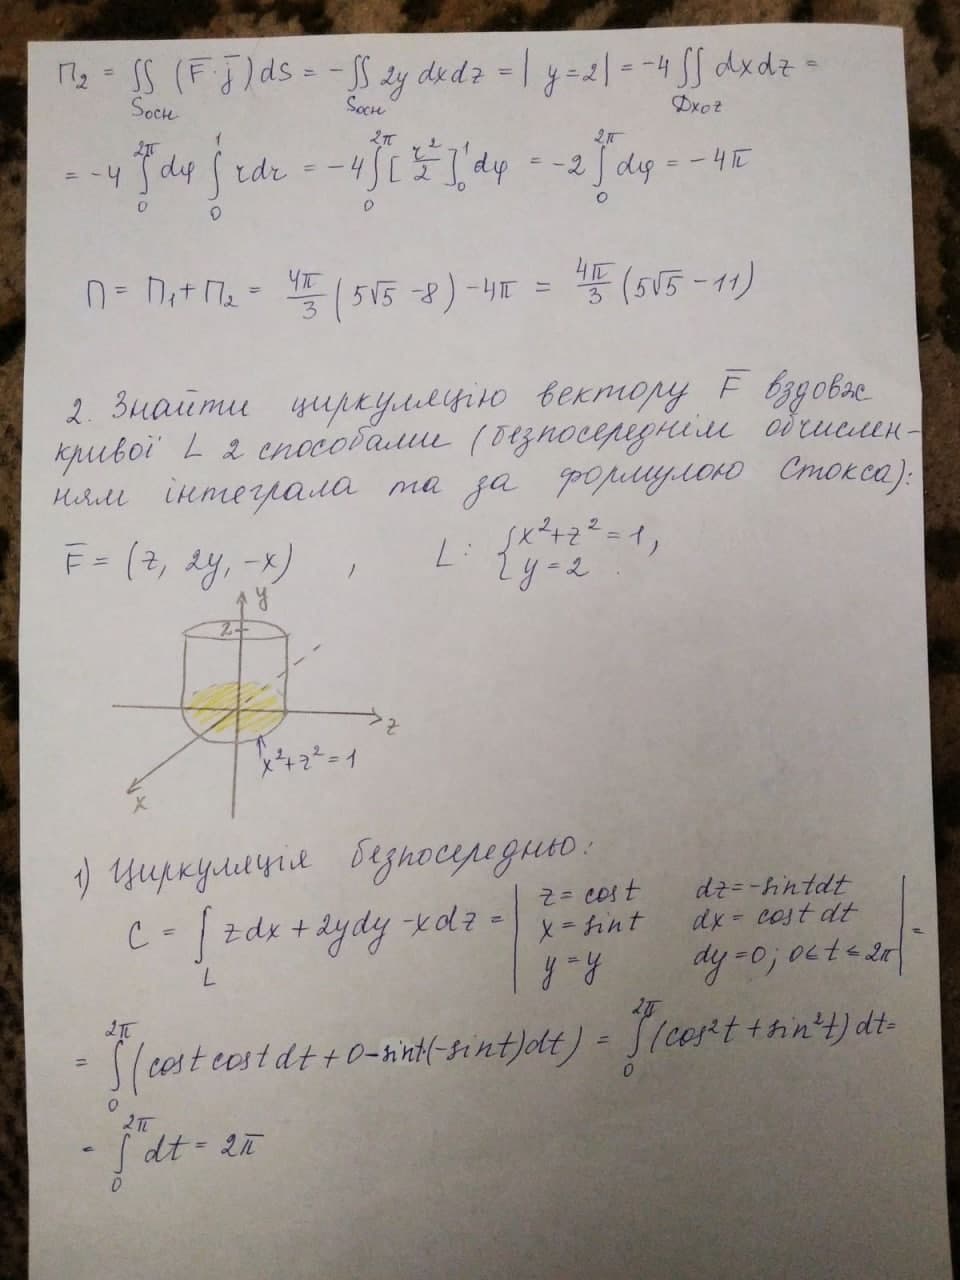 П₂ = ∬_{Sосн} (F̅·j̅)dS = -∬_{Sосн} 2y dxdz = | y=2 | = -4 ∬_{Dxoz} dxdz =
= -4 ∫₀^{2π} dφ ∫₀¹ rdr = -4 ∫₀^{2π} [r²/2]₀¹ dφ = -2 ∫₀^{2π} dφ = -4π
П = П₁ + П₂ = 4π/3 (5√5 - 8) - 4π = 4π/3 (5√5 - 11)
2. Знайти циркуляцію вектору F̅ вздовж
кривої L 2 способами (безпосереднім обчислен-
ням інтеграла та за формулою Стокса):
F̅ = (z, 2y, -x) , L: { x²+z²=1, y=2 .
y
2
z
x²+z²=1
x
1) Циркуляція безпосередньо:
C = ∫_L zdx + 2ydy - xdz = | z = cost dz = -sintdt
x = sint dx = cost dt
y = y dy = 0; 0≤t≤2π | =
= ∫₀^{2π} (cost cost dt + 0 - sint(-sint)dt) = ∫₀^{2π} (cos²t + sin²t) dt =
= ∫₀^{2π} dt = 2π